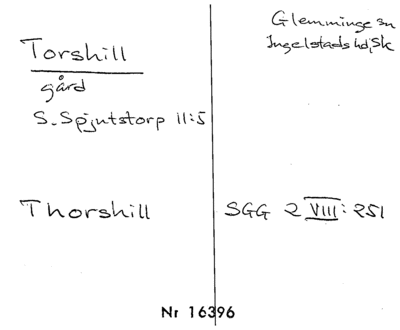 Glemminge sn
Ingelstads hd, Sk
Torshill
gård
S. Spjutstorp 11:5
Thorshill
SGG 2 VIII: 251
Nr 16396